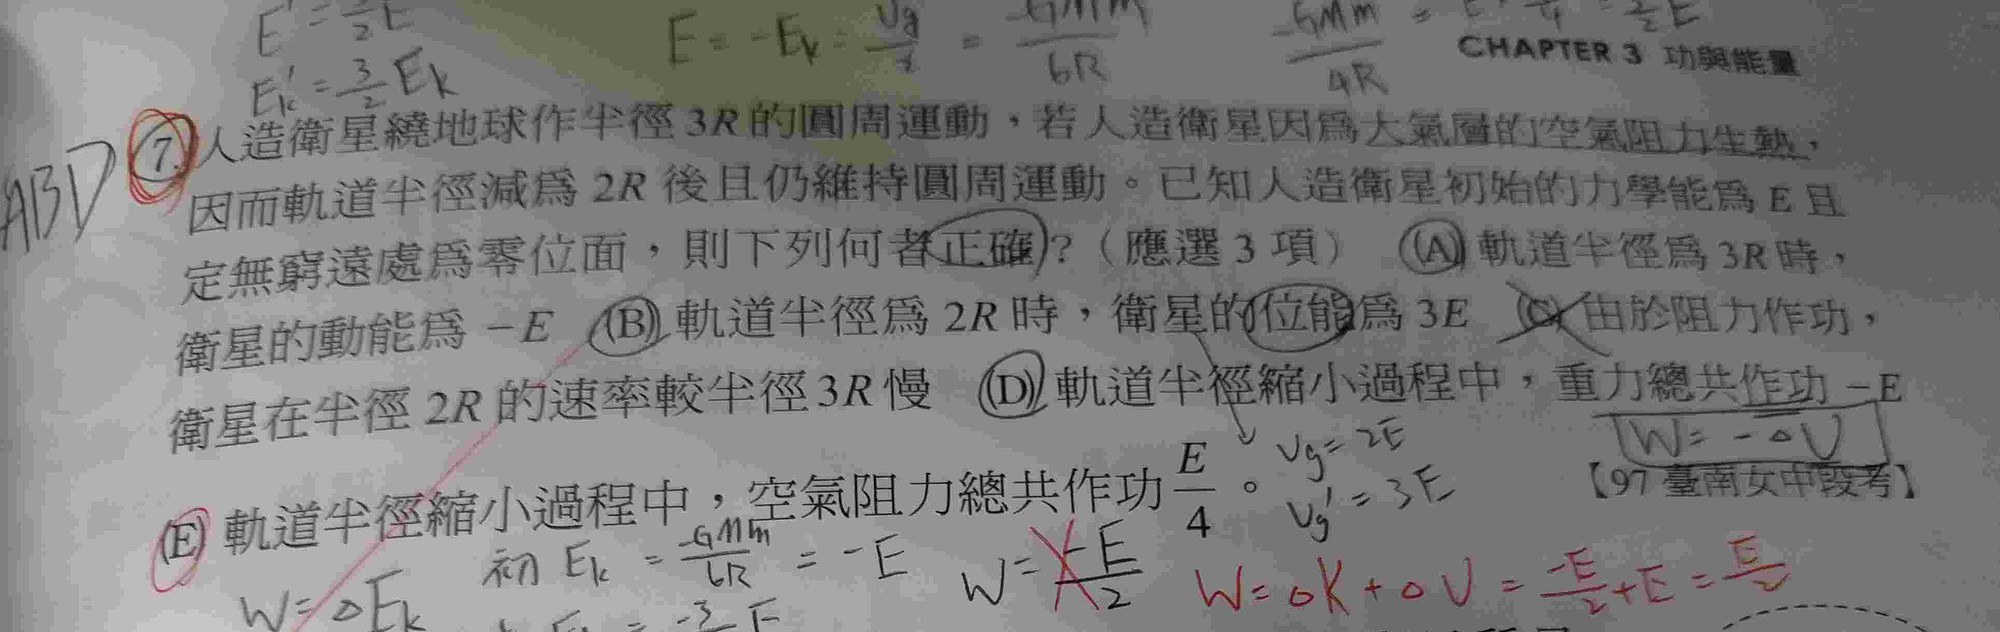 E' = 3/2 E
E = -Ek = Ug/2 = -GMm/6R
-GMm/4R
CHAPTER 3 功與能量
Ek' = 3/2 Ek
ABD
7. 人造衛星繞地球作半徑 3R 的圓周運動，若人造衛星因為大氣層的空氣阻力生熱，
因而軌道半徑減為 2R 後且仍維持圓周運動。已知人造衛星初始的力學能為 E 且
定無窮遠處為零位面，則下列何者正確？（應選 3 項） (A) 軌道半徑為 3R 時，
衛星的動能為 -E (B) 軌道半徑為 2R 時，衛星的位能為 3E (C) 由於阻力作功，
衛星在半徑 2R 的速率較半徑 3R 慢 (D) 軌道半徑縮小過程中，重力總共作功 -E
W = -ΔU
(E) 軌道半徑縮小過程中，空氣阻力總共作功 E/4。
Ug = 2E
Ug' = 3E
【97 臺南女中段考】
初 Ek = -GMm/6R = -E
W = -E/2
W = ΔK + ΔU = -E/2 + E = E/2
W = ΔEk